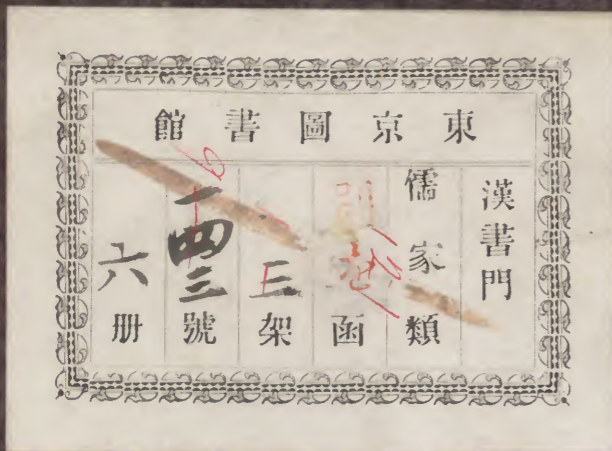 東京圖書館
漢書門
儒家類
函
三架
一四三號
六册